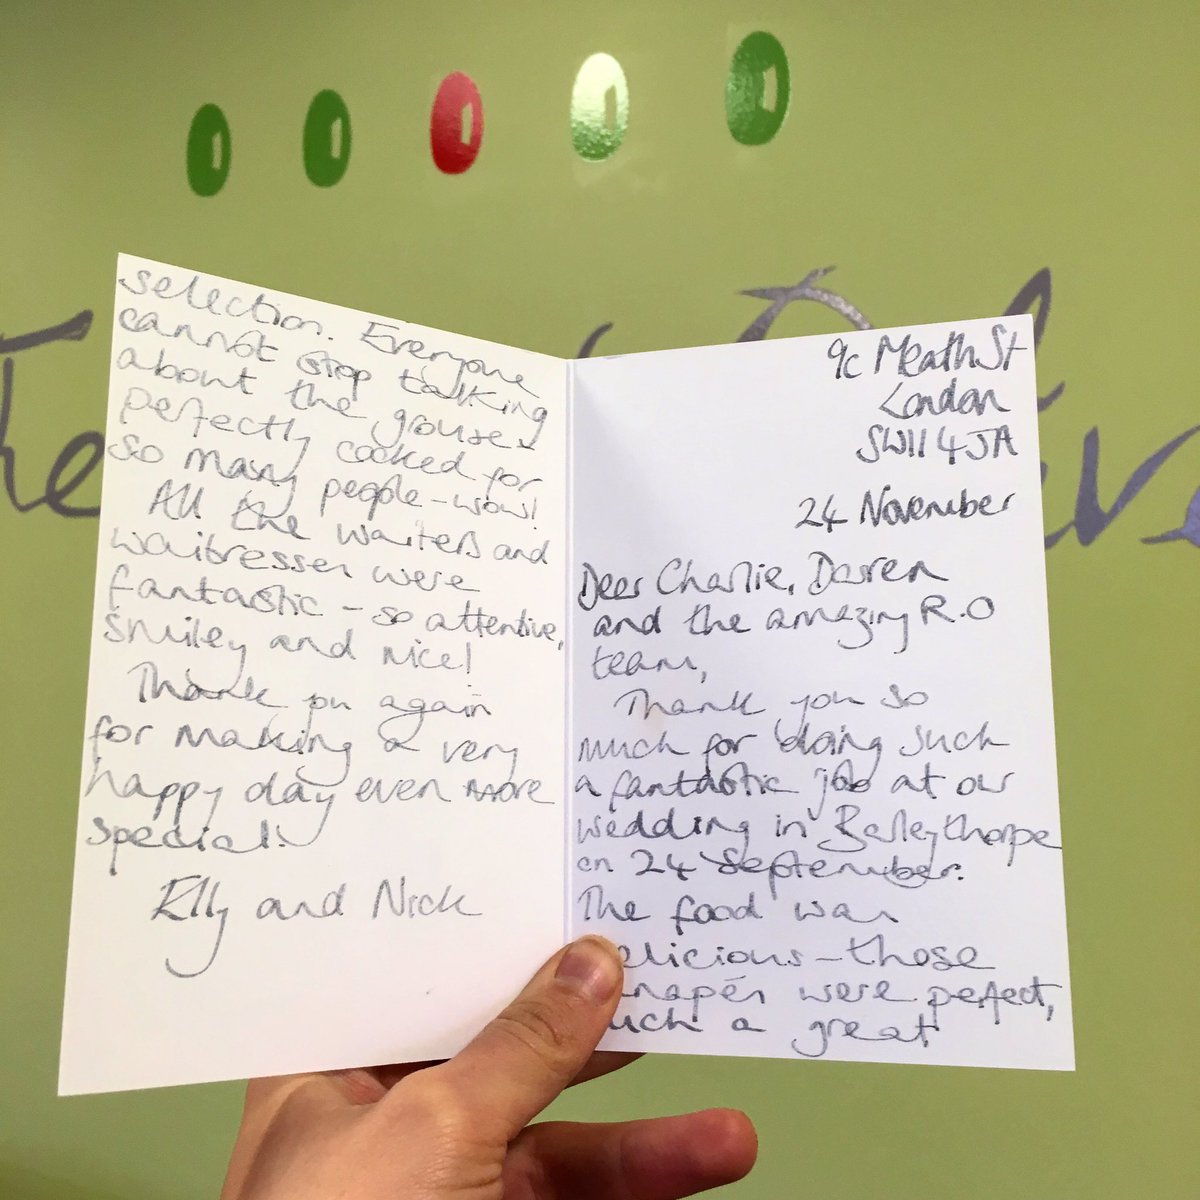 9c Meath St
London
SW11 4JA
24 November
Dear Charlie, Darren
and the amazing R.O
team,
Thank you so
much for doing such
a fantastic job at our
wedding in Barleythorpe
on 24 September.
The food was
elicious – those
napés were perfect,
uch a great
selection. Everyone
cannot stop talking
about the grouse
perfectly cooked for
so many people – wow!
All the waiters and
waitresses were
fantastic – so attentive,
smiley and nice!
Thank you again
for making a very
happy day even more
special!
Elly and Nick
The